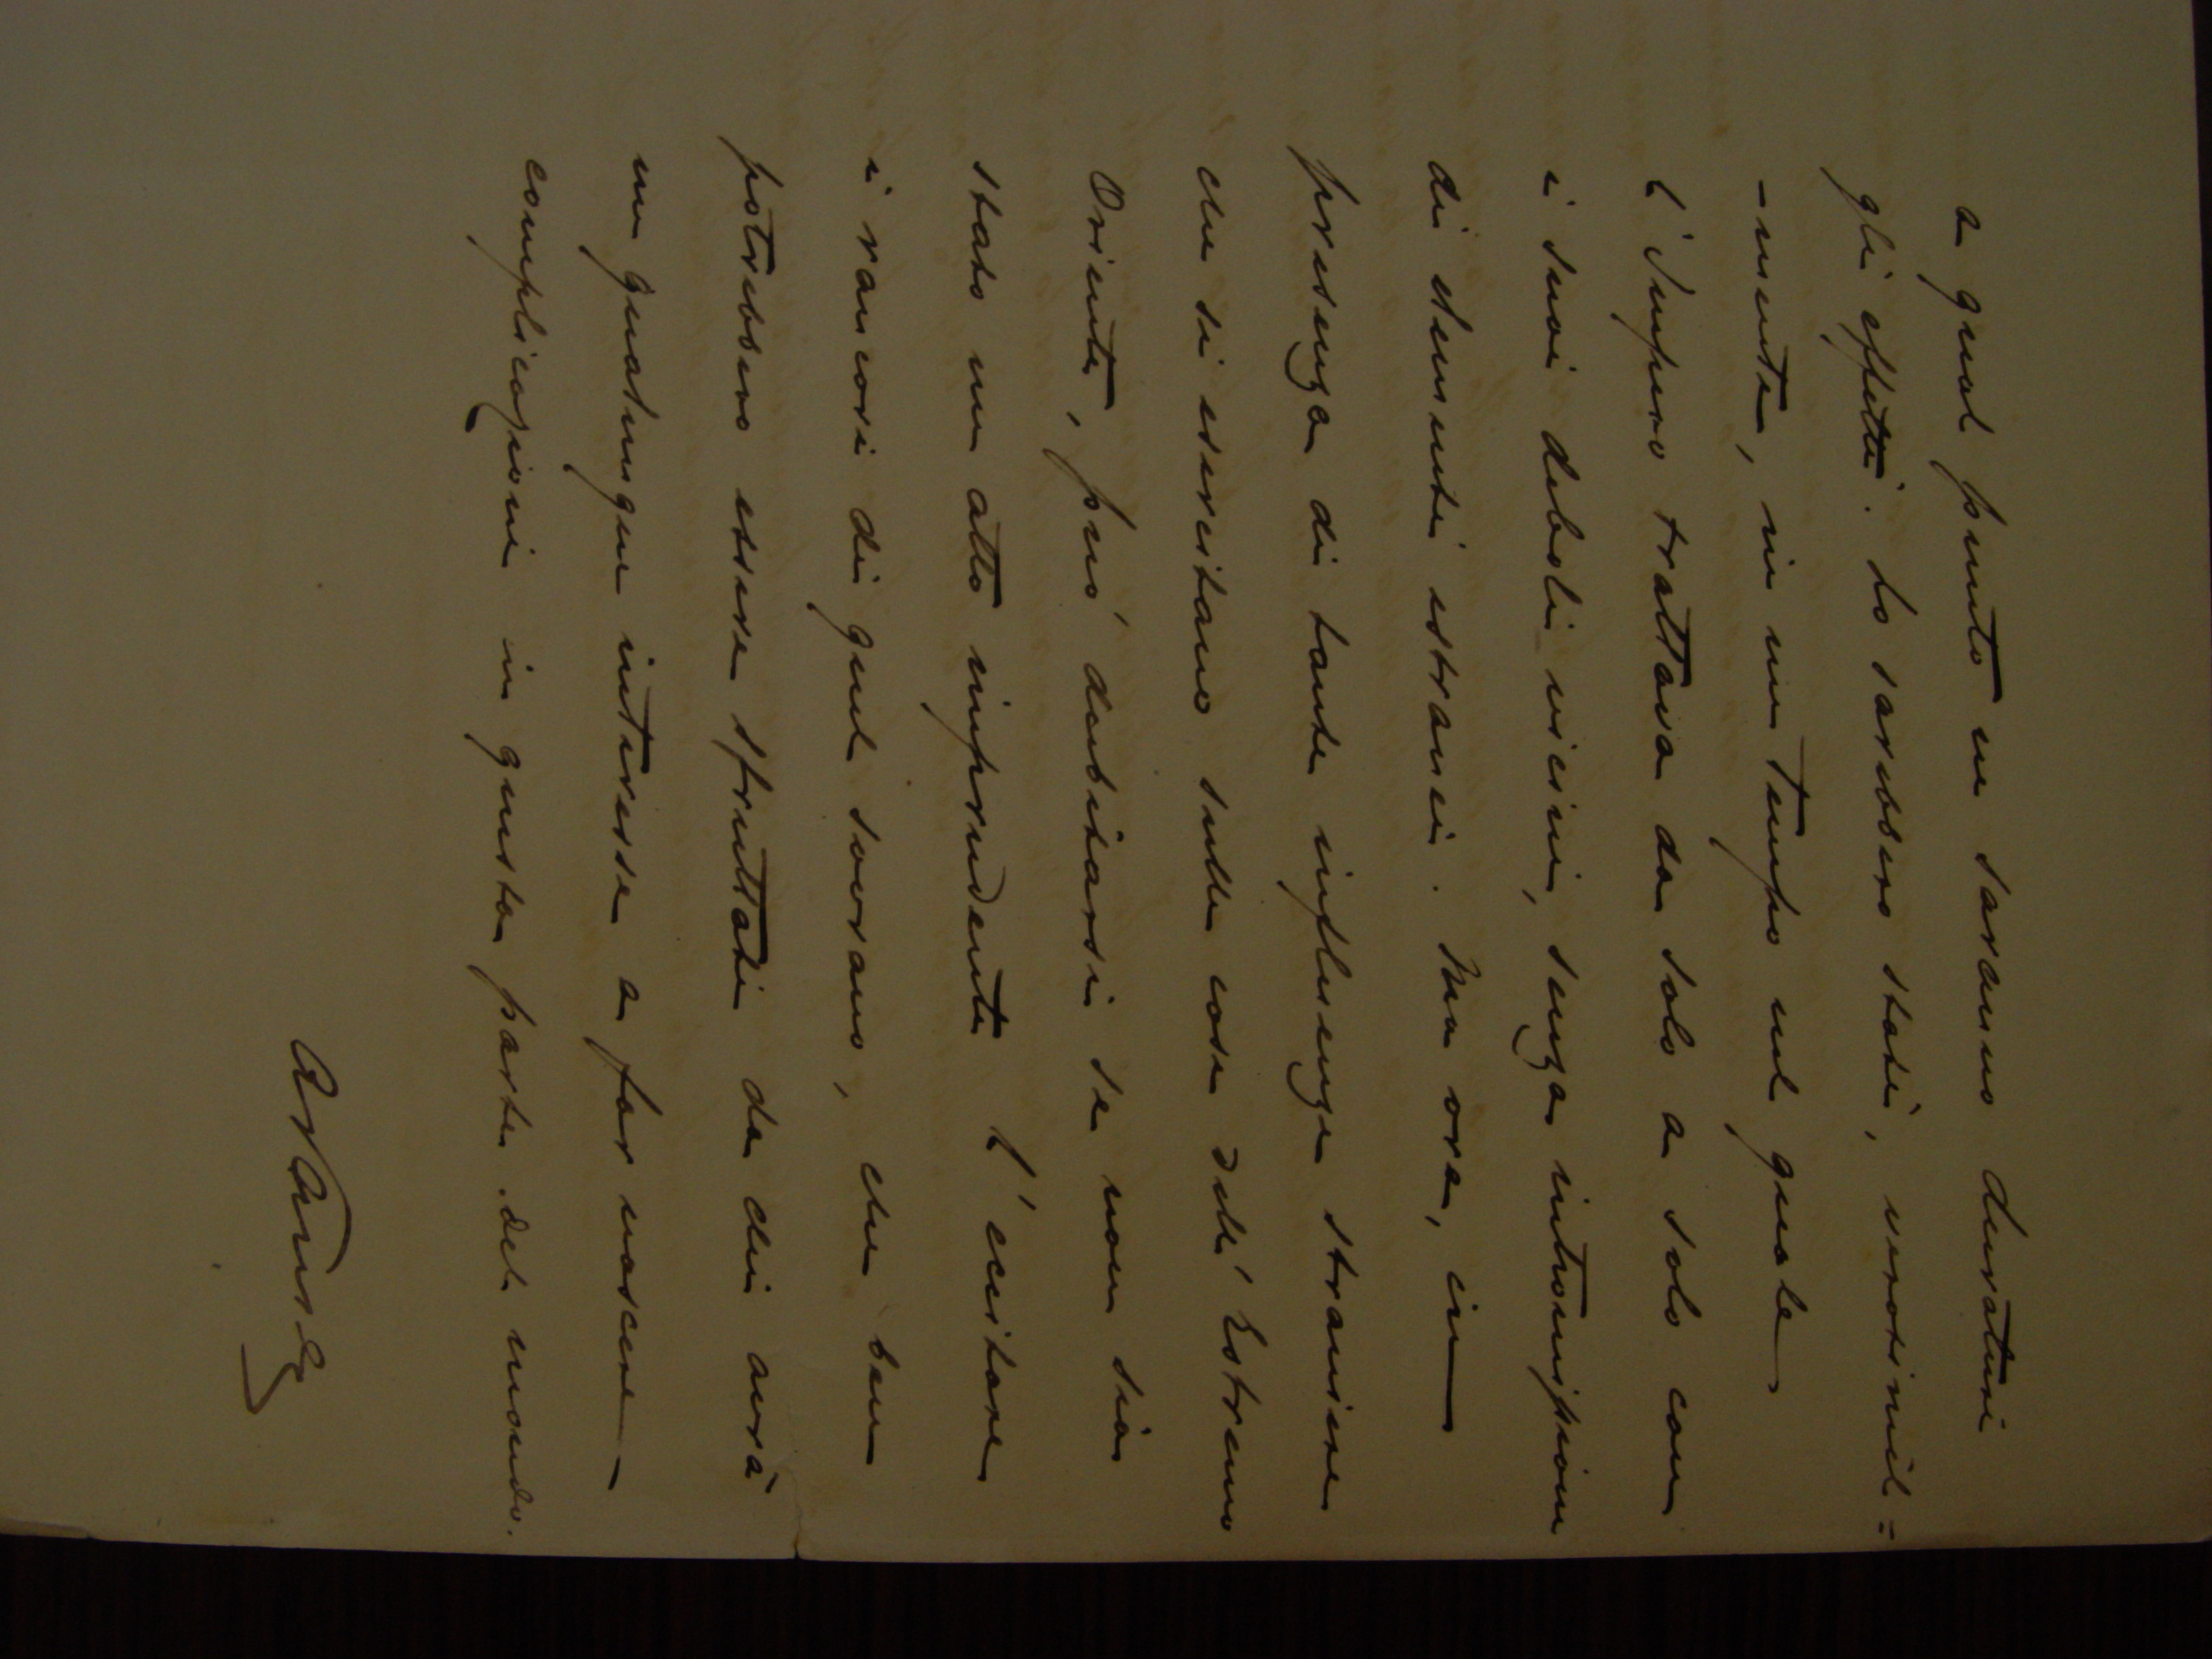 a qual punto ne saranno duraturi
gli effetti. Lo sarebbero stati, verosimil=
-mente, in un tempo nel quale
l'Impero trattava da solo a solo con
i suoi deboli vicini, senza intromissione
di elementi estranei. Ma ora, in
presenza di tante influenze straniere
che si esercitano sulle cose dell'Estremo
Oriente, può dubitarsi se non sia
stato un atto imprudente l'eccitare
i rancori di quel sovrano, che ben
potrebbero essere sfruttati da chi avrà
un qualunque interesse a far nascere
complicazioni in questa parte del mondo.